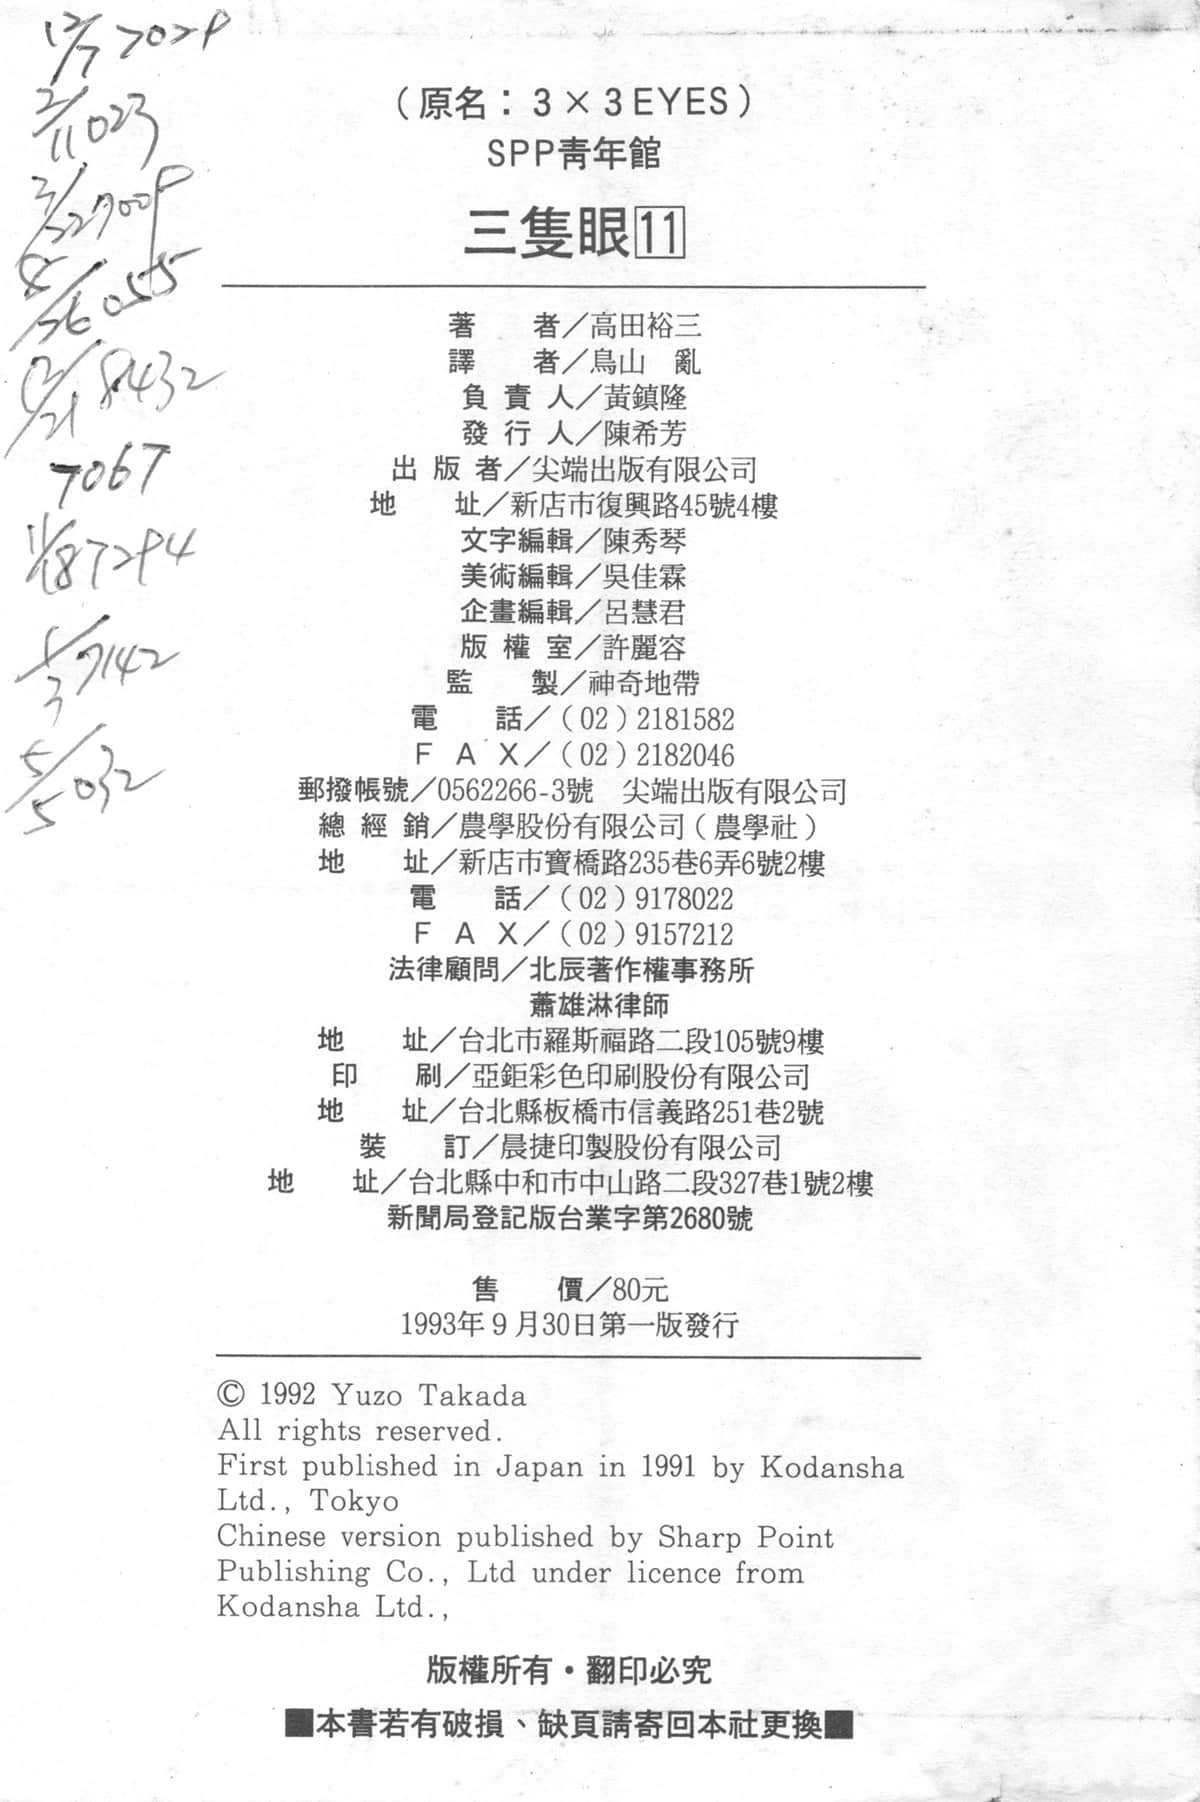 （原名：3×3EYES）
SPP青年館
三隻眼11
著　　者／高田裕三
譯　　者／鳥山　亂
負 責 人／黃鎮隆
發 行 人／陳希芳
出 版 者／尖端出版有限公司
地　　址／新店市復興路45號4樓
文字編輯／陳秀琴
美術編輯／吳佳霖
企畫編輯／呂慧君
版 權 室／許麗容
監　　製／神奇地帶
電　　話／（02）2181582
F A X／（02）2182046
郵撥帳號／0562266-3號　尖端出版有限公司
總 經 銷／農學股份有限公司（農學社）
地　　址／新店市寶橋路235巷6弄6號2樓
電　　話／（02）9178022
F A X／（02）9157212
法律顧問／北辰著作權事務所
蕭雄淋律師
地　　址／台北市羅斯福路二段105號9樓
印　　刷／亞鉅彩色印刷股份有限公司
地　　址／台北縣板橋市信義路251巷2號
裝　　訂／晨捷印製股份有限公司
地　　址／台北縣中和市中山路二段327巷1號2樓
新聞局登記版台業字第2680號
售　　價／80元
1993年9月30日第一版發行
© 1992 Yuzo Takada
All rights reserved.
First published in Japan in 1991 by Kodansha
Ltd., Tokyo
Chinese version published by Sharp Point
Publishing Co., Ltd under licence from
Kodansha Ltd.,
版權所有・翻印必究
■本書若有破損、缺頁請寄回本社更換■
2/11 023
12/21 8432
7067
1/3 7142
5/5 032